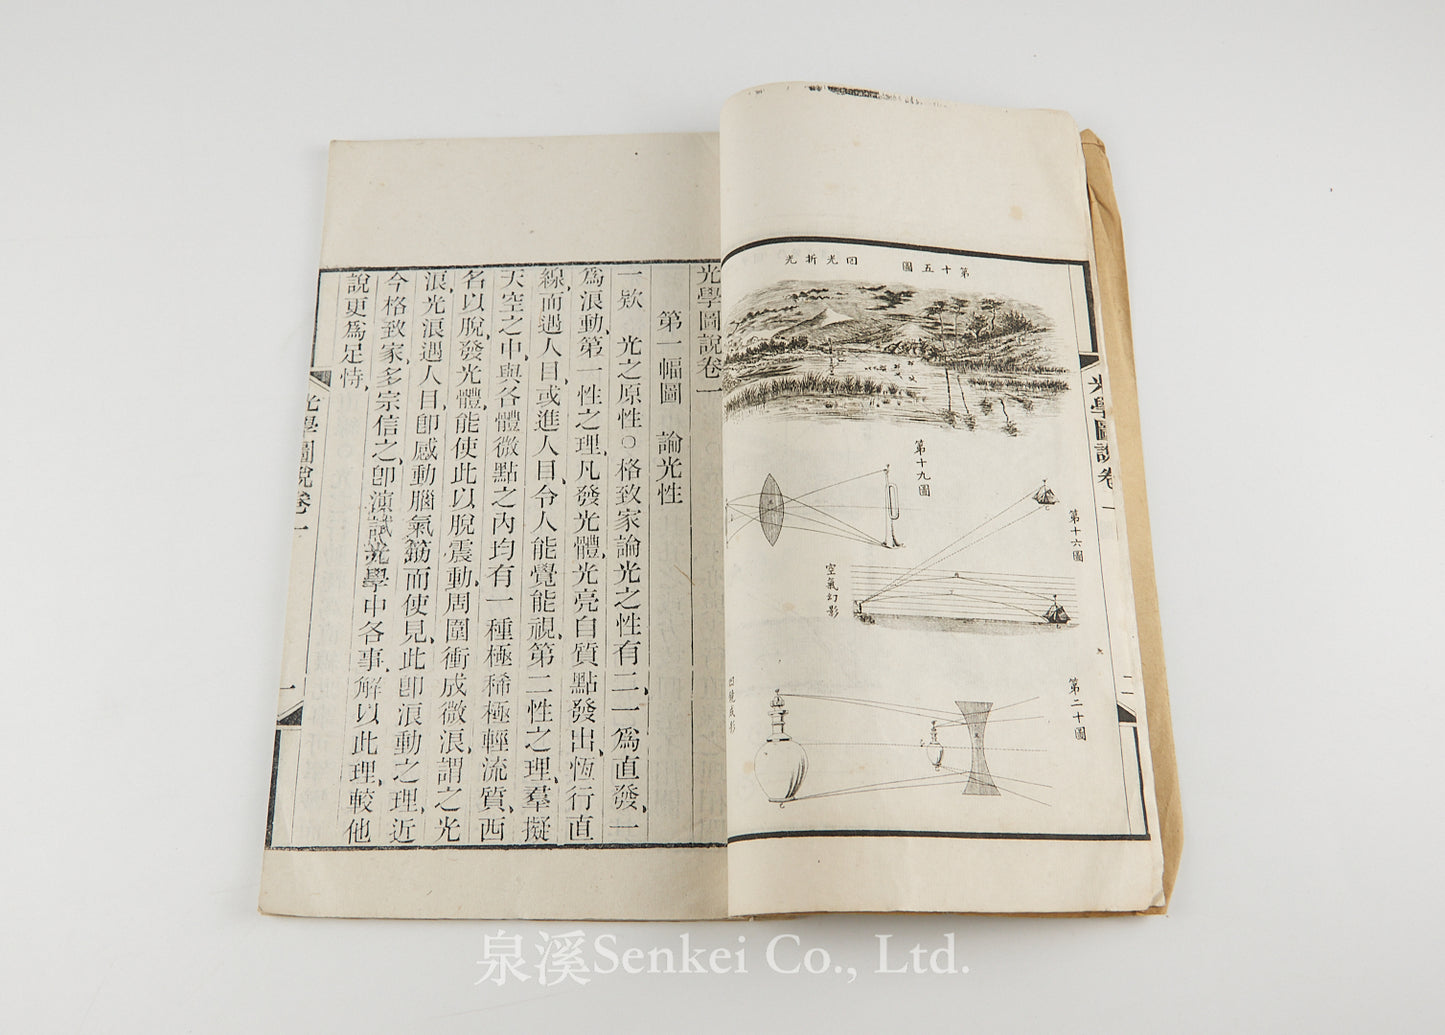 回光折光
第十五圖
第十九圖
第十六圖
空氣幻影
第二十圖
光學圖說卷一
二
光學圖說卷一
第一幅圖　論光性
一欵　光之原性○格致家論光之性有二、一爲直發、一
爲浪動、第一性之理、凡發光體、光亮自質點發出、恆行直
線、而遇人目、或進人目、令人能覺能視、第二性之理、羣擬
天空之中、與各體微點之內、均有一種極稀極輕流質、西
名以脫、發光體、能使此以脫震動、周圍衝成微浪、謂之光
浪、光浪遇人目、卽感動腦氣筋而使見、此卽浪動之理、近
今格致家、多宗信之、卽演試光學中各事、解以此理、較他
說更爲足恃、
光學圖說卷一
一
泉溪Senkei Co., Ltd.